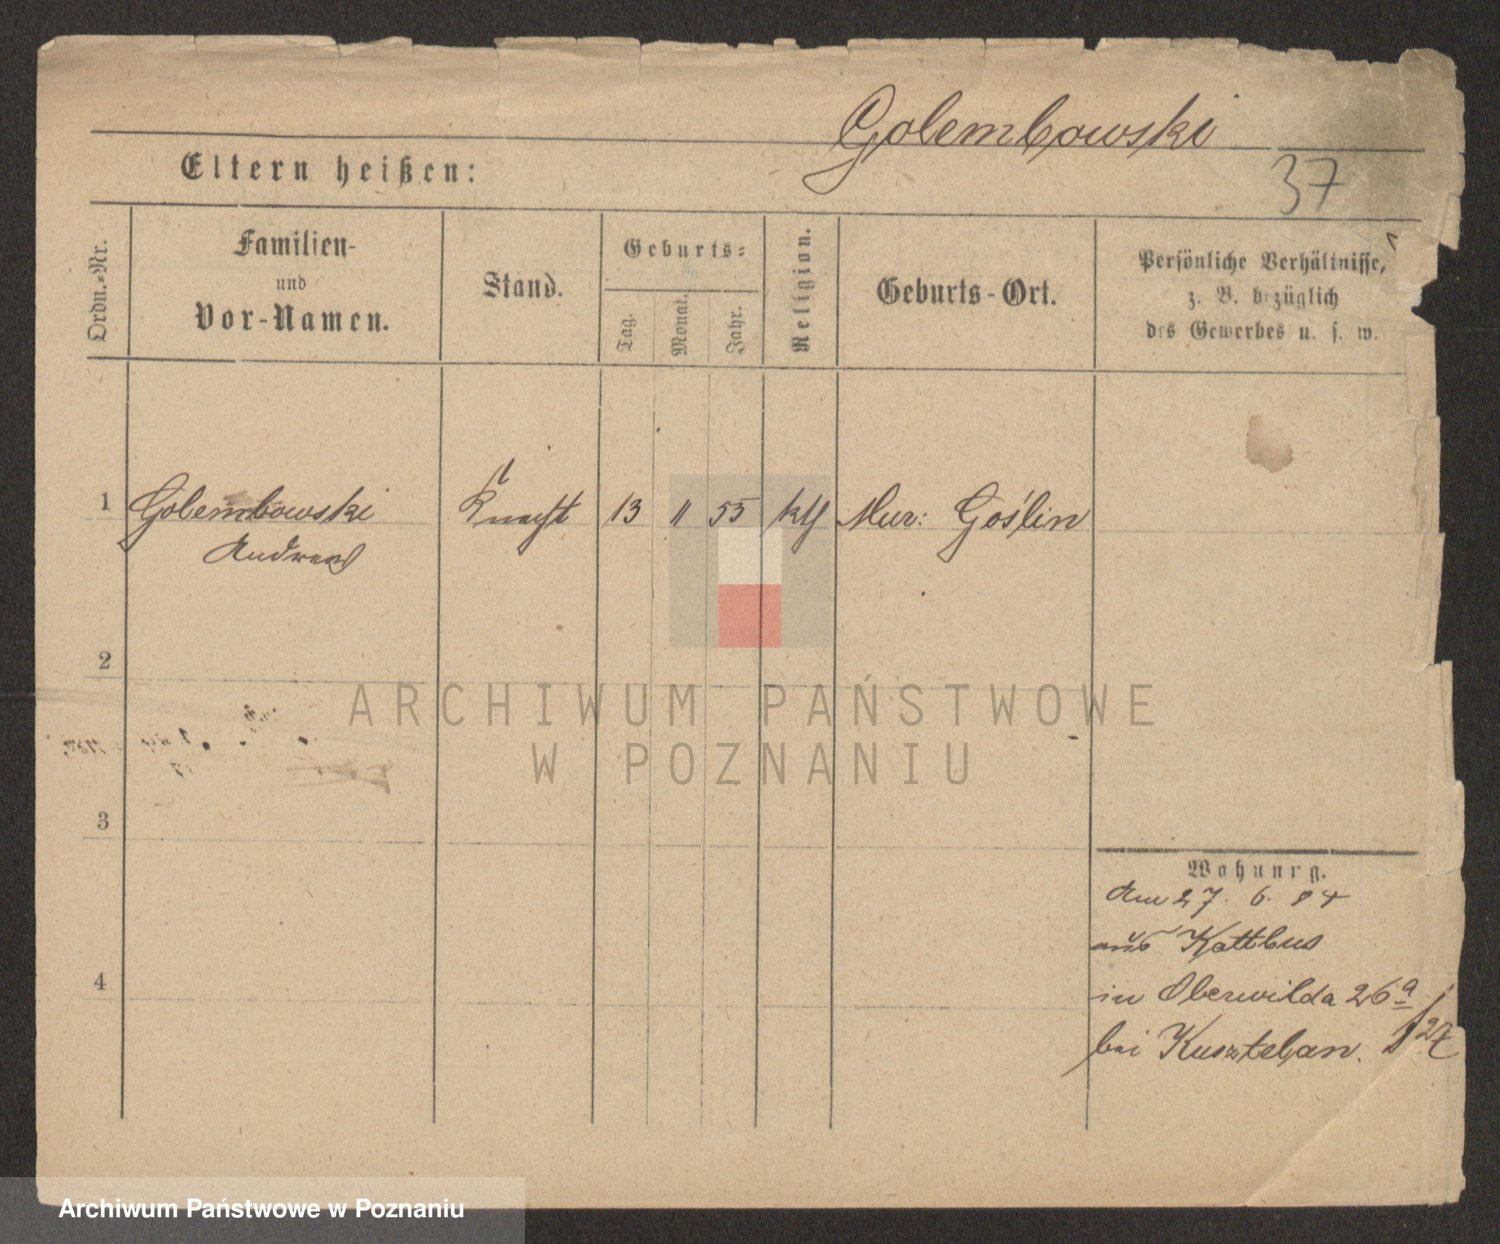 Golembowski
37
Eltern heißen:
Ordn.-Nr.
Familien-
und
Vor-Namen.
Stand.
Geburts-
Tag.
Monat.
Jahr.
Religion.
Geburts-Ort.
Persönliche Verhältnisse,
z. B. bezüglich
des Gewerbes u. s. w.
1 Golembowski Knecht 13 11 55 kth Mur: Goślin
Andreas
2
ARCHIWUM PAŃSTWOWE
W POZNANIU
3
Wohnung.
Am 27. 6. 84
aus Kottbus
4
in Oberwilda 26a
bei Kusztelan.
Archiwum Państwowe w Poznaniu